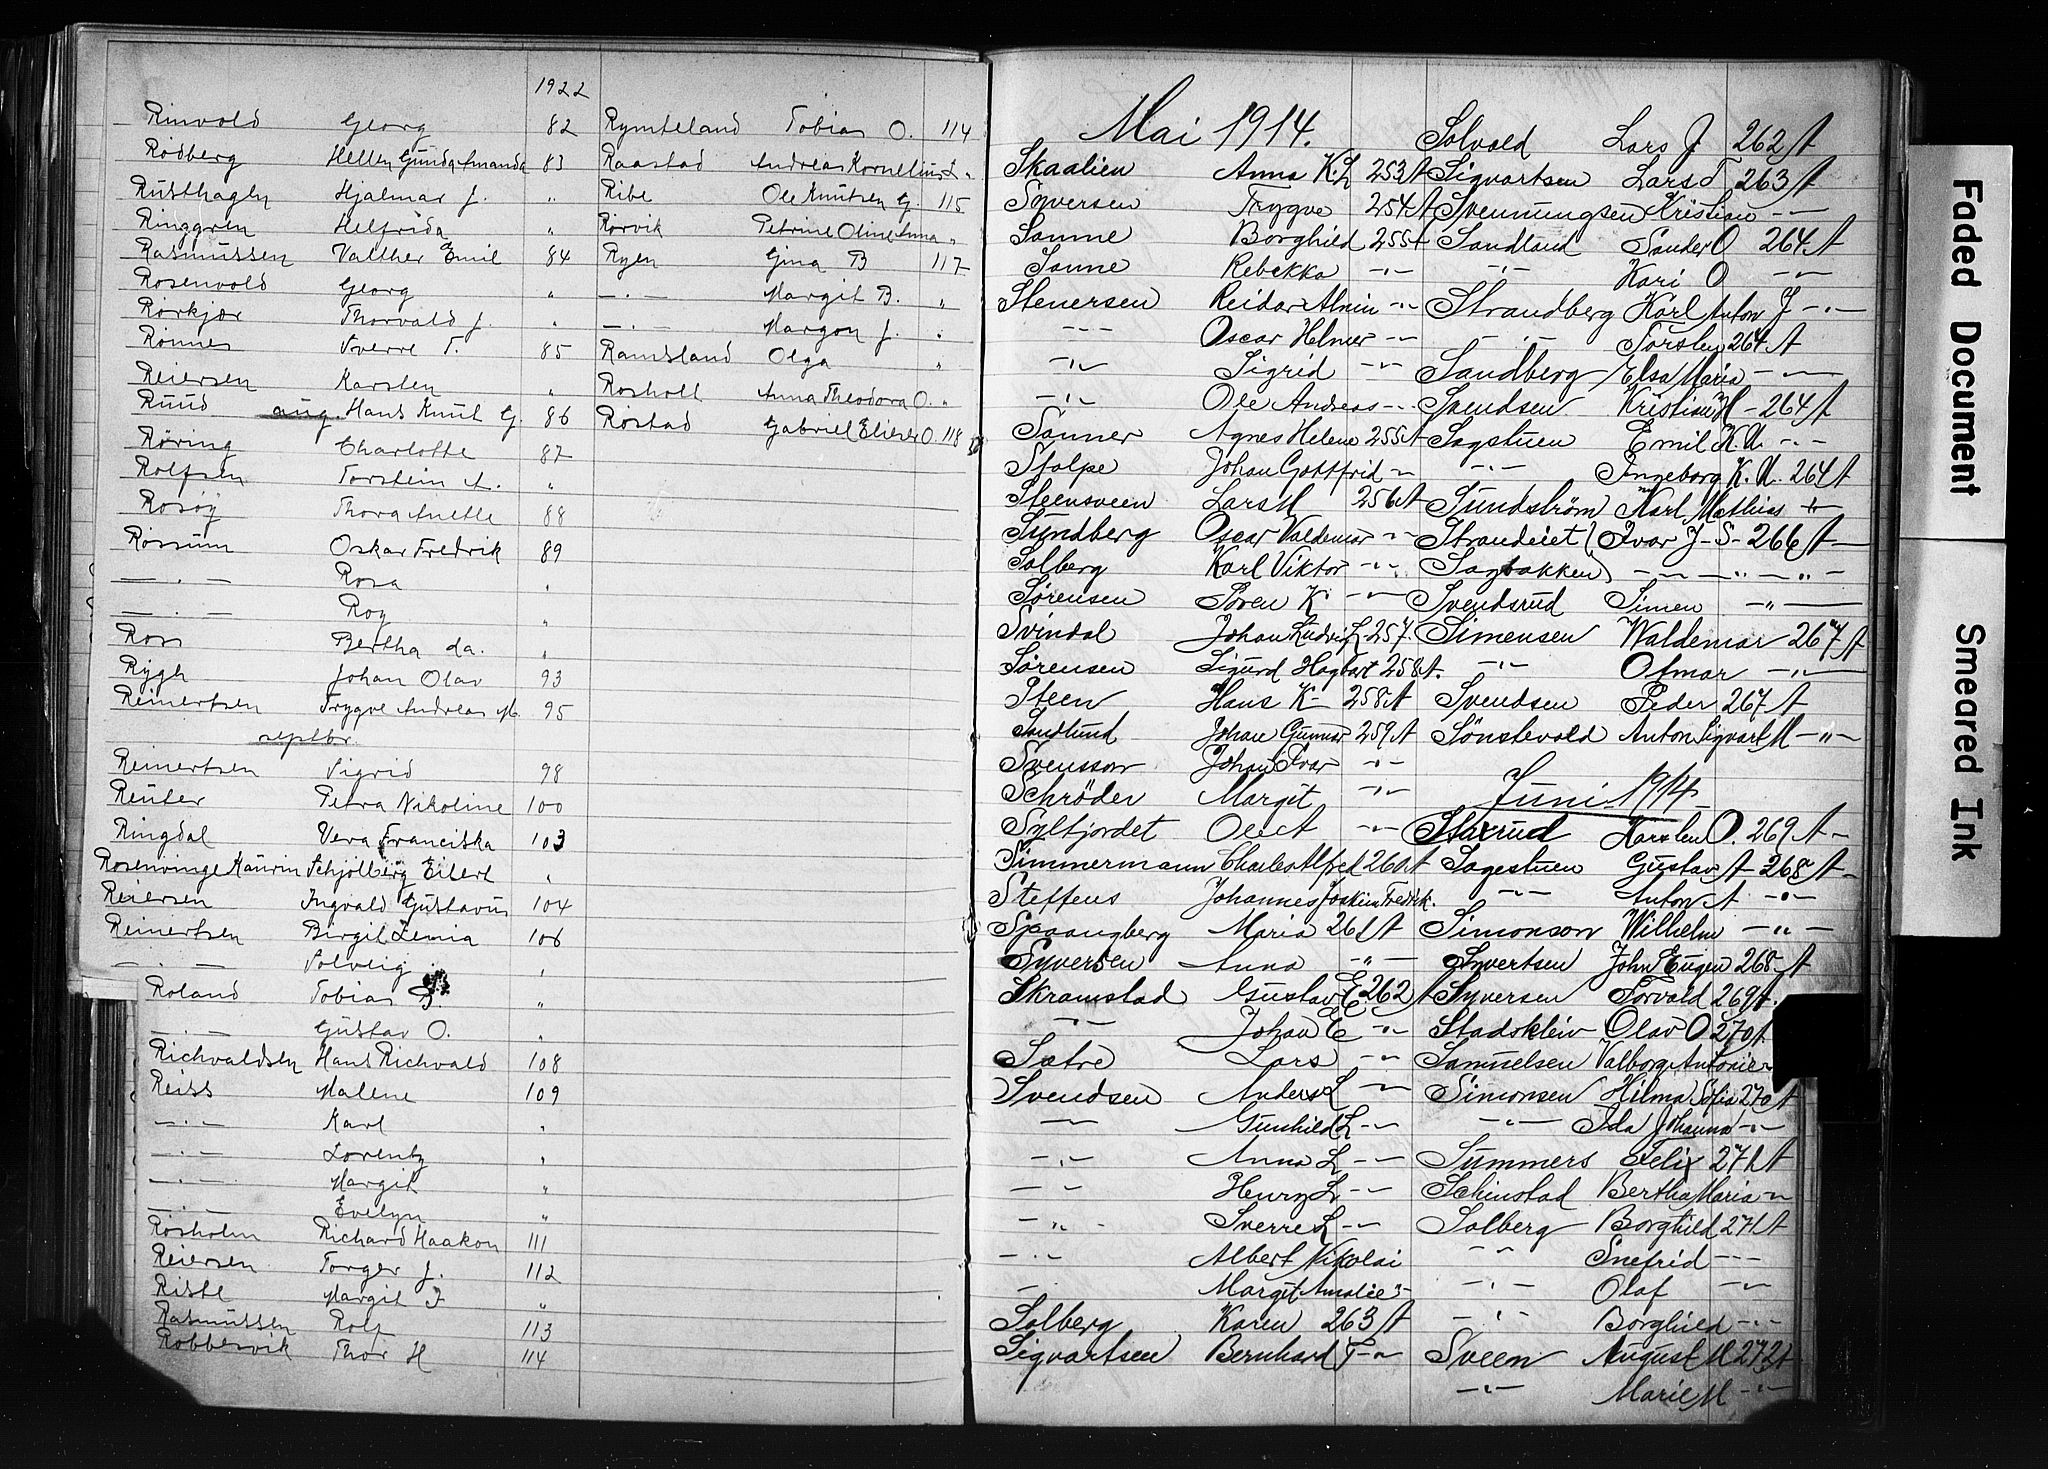 1922
Rinvold Georg 82
Rodberg Hellen Gunda Amanda 83
Rusthagen Hjalmar J. "
Ringgren Helfrida "
Rasmussen Valther Emil 84
Rosenvold Georg "
Rørkjær Thorvald J. "
Rønnes Sverre T. 85
Reiersen Karsten "
Ruud aug. Hans Knut G. 86
Røring Charlotte 87
Rolfsen Torstein A. "
Rosøy Thora Anette 88
Røssum Oskar Fredrik 89
— " — Rosa "
— " — Roy "
Ross Bertha da. "
Rygh Johan Olav 93
Reinertsen Trygve Andreas M. 95
septbr.
Reinertsen Sigrid 98
Reuter Petra Nikoline 100
Ringdal Vera Franciska 103
Rosenvinge Kaurin Schjølberg Eilert "
Reiersen Ingvald Gustavus 104
Reinertsen Birgit Zenia 106
— " — Solveig "
Roland Tobias "
— " — Gustav O. "
Richvaldsen Hans Richvald 108
Reiss Malene 109
— " — Karl "
— " — Lorentz "
— " — Margit "
— " — Evelyn "
Rosholm Richard Haakon 111
Reiersen Torger J. 112
Riste Margit J "
Rasmussen Rolf 113
Robbesvik Thor H 114
Rymteland Tobias O. 114
Raastad Andreas Kornelius L "
Ribe Ole Knutsen G. 115
Rørvik Petrine Oline Anna "
Ryen Gina B 117
— " — Margit B. "
— " — Margon J. "
Ramsland Olga "
Rosholt Anna Theodora O. "
Røstad Gabriel Elieser O. 118
Mai 1914.
Skaalien Anna K. L 253 A
Syversen Trygve 254 A
Sanne Borghild 255 A
Sanne Rebekka — " —
Stenersen Reidar Almin — " —
— " — Oscar Helmer — " —
— " — Sigrid — " —
— " — Ole Andreas — " —
Sanner Agnes Helene 255 A
Stolpe Johan Gottfrid — " —
Steensveen Lars M 256 A
Sundberg Oscar Valdemar — " —
Solberg Karl Viktor — " —
Sørensen Søren K — " —
Svindal Johan Ludvig L 257.
Sørensen Sigurd Hagbart 258 A.
Steen Hans K 258 A
Sandlund Johan Gunnar 259 A
Svensson Johan Ivar — " —
Schrøder Margit — " —
Syltfjordet Ole A — " —
Simmermann Charles Alfred 260 A
Steffens Johannes Joskim Fredrik.
Spaangberg Maria 261 A
Syversen Anna — " —
Skramstad Gustav E 262 A
— " — Johan E — " —
Sætre Lars — " —
Svendsen Anders L — " —
— " — Gunhild L — " —
— " — Anna L — " —
— " — Henry L — " —
— " — Sverre L — " —
— " — Albert Nikolai
— " — Margit Amalie — " —
Solberg Karen 263 A
Sigvartsen Bernhard T — " —
Solvold Lars J 262 A
Sigvartsen Lars T 263 A
Svennungsen Kristian — " —
Sandland Sander O 264 A
— " — Kari O — " —
Strandberg Karl Anton J — " —
— " — Torsten 264 A
Sandberg Elsa Maria — " —
Svendsen Kristian H — 264 A
Sagstuen Emil K. U. — " —
— " — Ingeborg K. U. 264 A
Sundstrøm Karl Mathias — " —
Strandeiet (Ivar J - S - 266 A —
Sagbakken) — " — " —
Svendsrud Simen — " —
Simensen Waldemar 267 A
— " — Otmar — " —
Svendsen Peder 267 A
Sønstevold Anton Sigvart M — " —
Juni 1914
Staxrud Karsten O. 269 A —
Sagestuen Gustav A 268 A —
— " — Anton A — " —
Simonson Wilhelm — " —
Sivertsen John Eugen 268 A
Syversen Torvald 269 A.
Stadskleiv Olav O 270 A
Samuelsen Valborg Antonie —
Simonsen Hilma Sofia 270 A
— " — Ida Johanna — " —
Summers Felix 271 A
Schinstad Bertha Maria — " —
Solberg Borghild 271 A
— " — Snefrid — " —
— " — Olaf — " —
— " — Borghild — " —
Sveen August M 272 A
— " — Marie M — " —
Faded Document
Smeared Ink